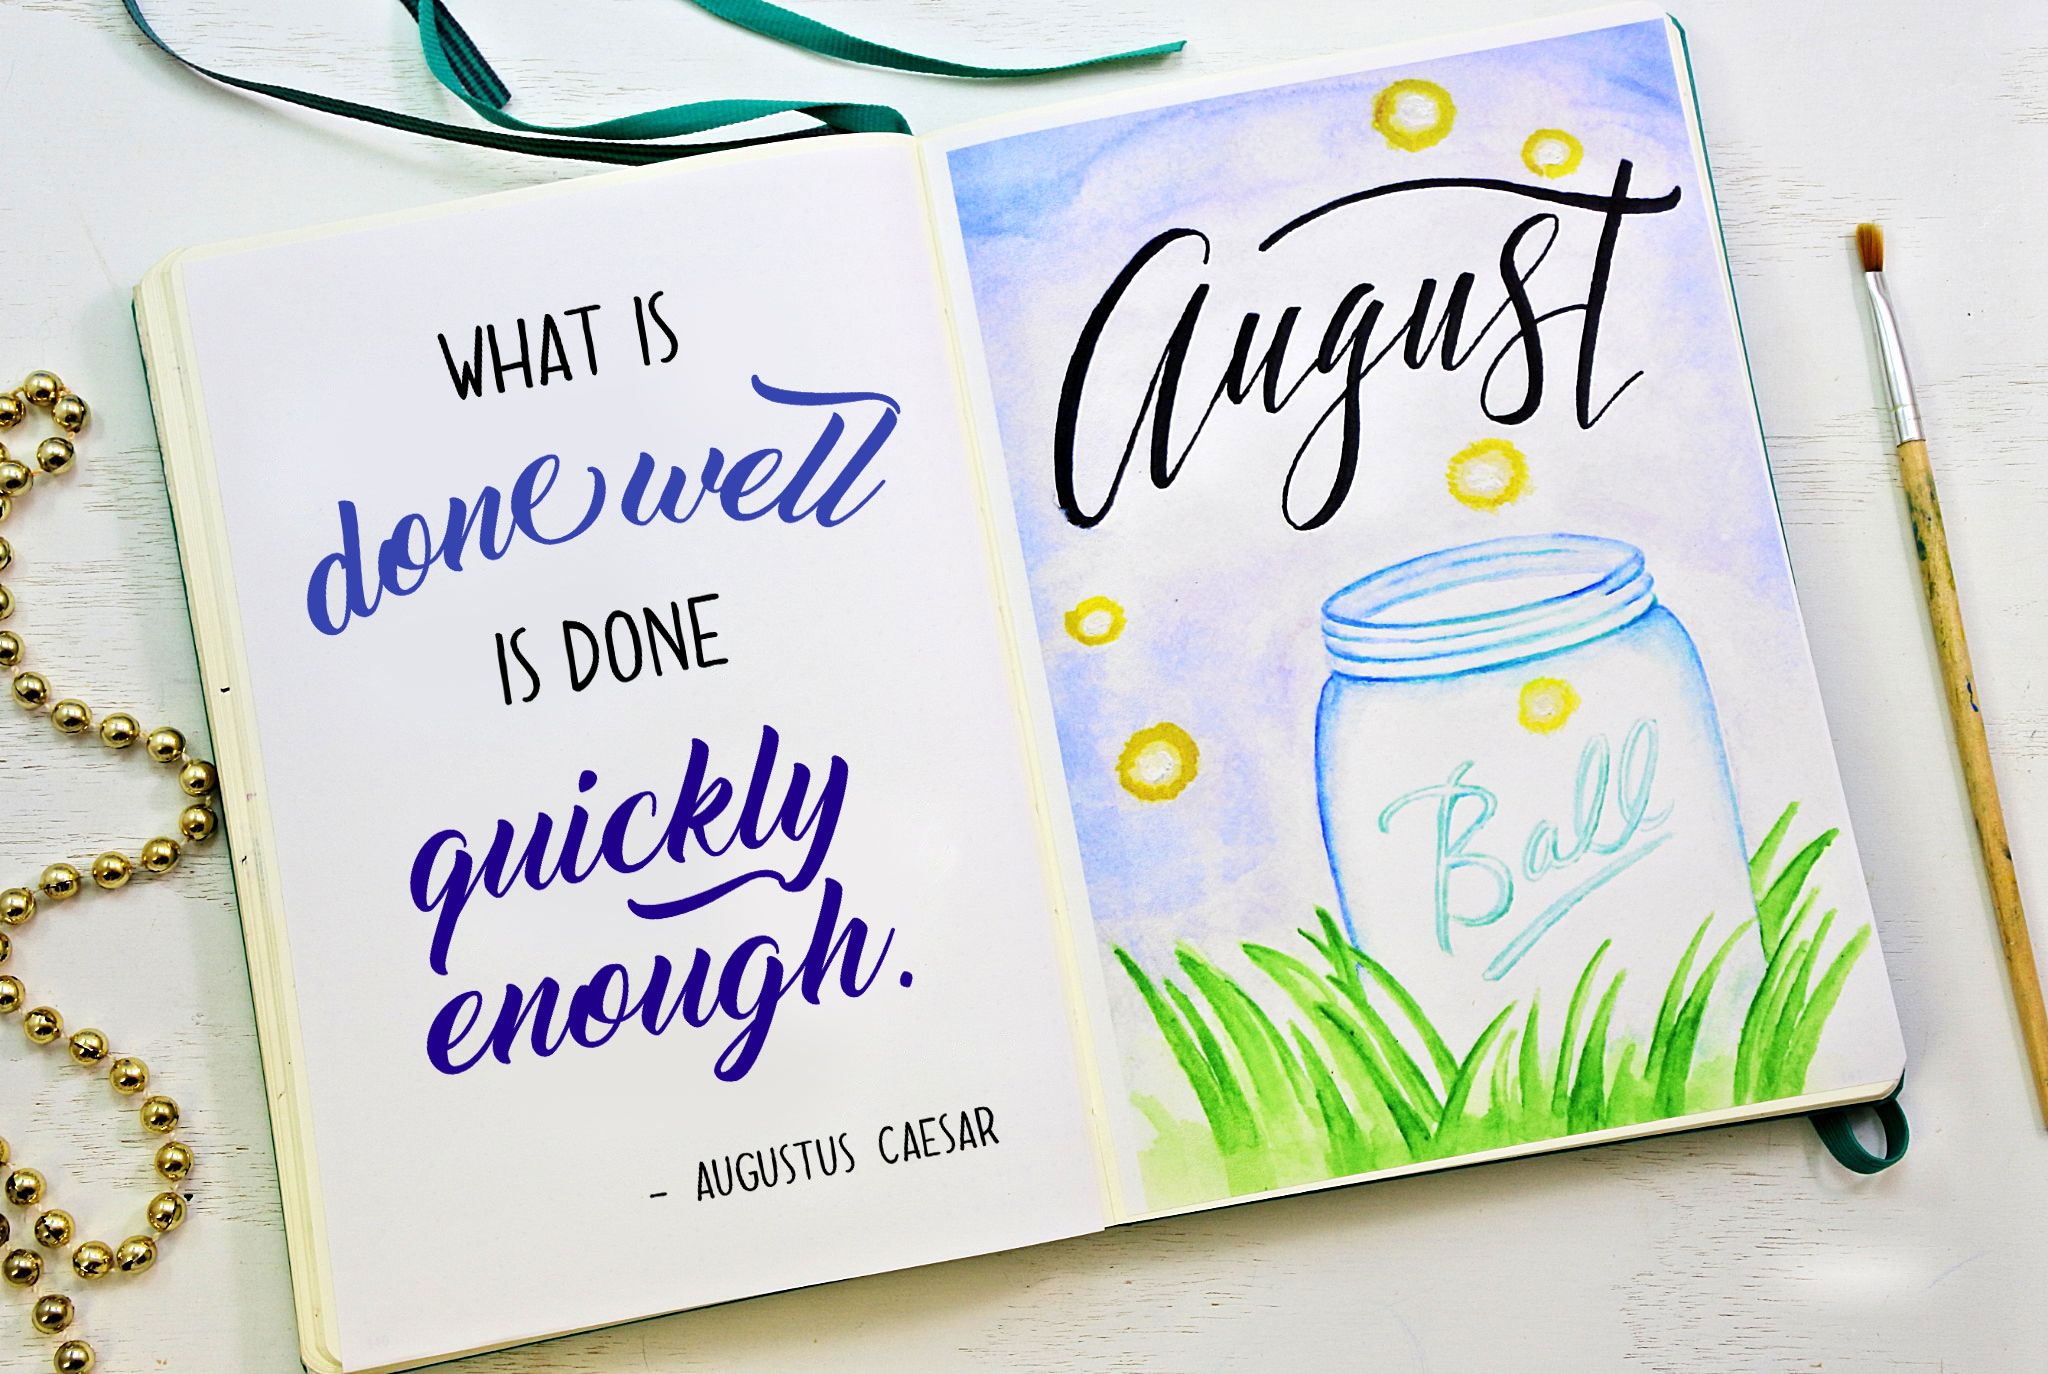 WHAT IS
done well
IS DONE
quickly
enough.
- AUGUSTUS CAESAR
August
Ball